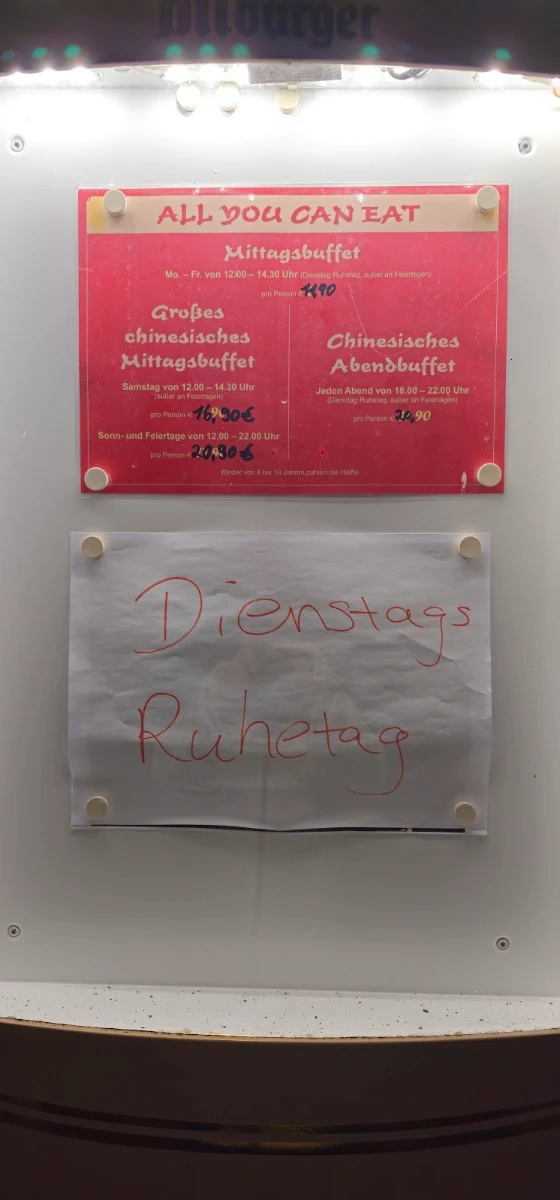 ALL YOU CAN EAT
Mittagsbuffet
Mo. – Fr. von 12:00 – 14.30 Uhr (Dienstag Ruhetag, außer an Feiertagen)
pro Person €
Großes
chinesisches
Mittagsbuffet
Samstag von 12.00 – 14.30 Uhr
(außer an Feiertagen)
pro Person € 16,90€
Sonn- und Feiertage von 12.00 – 22.00 Uhr
pro Person € 20,90€
Chinesisches
Abendbuffet
Jeden Abend von 18.00 – 22.00 Uhr
(Dienstag Ruhetag, außer an Feiertagen)
pro Person € 20,90
Kinder von 4 bis 10 Jahren zahlen die Hälfte
Dienstags
Ruhetag